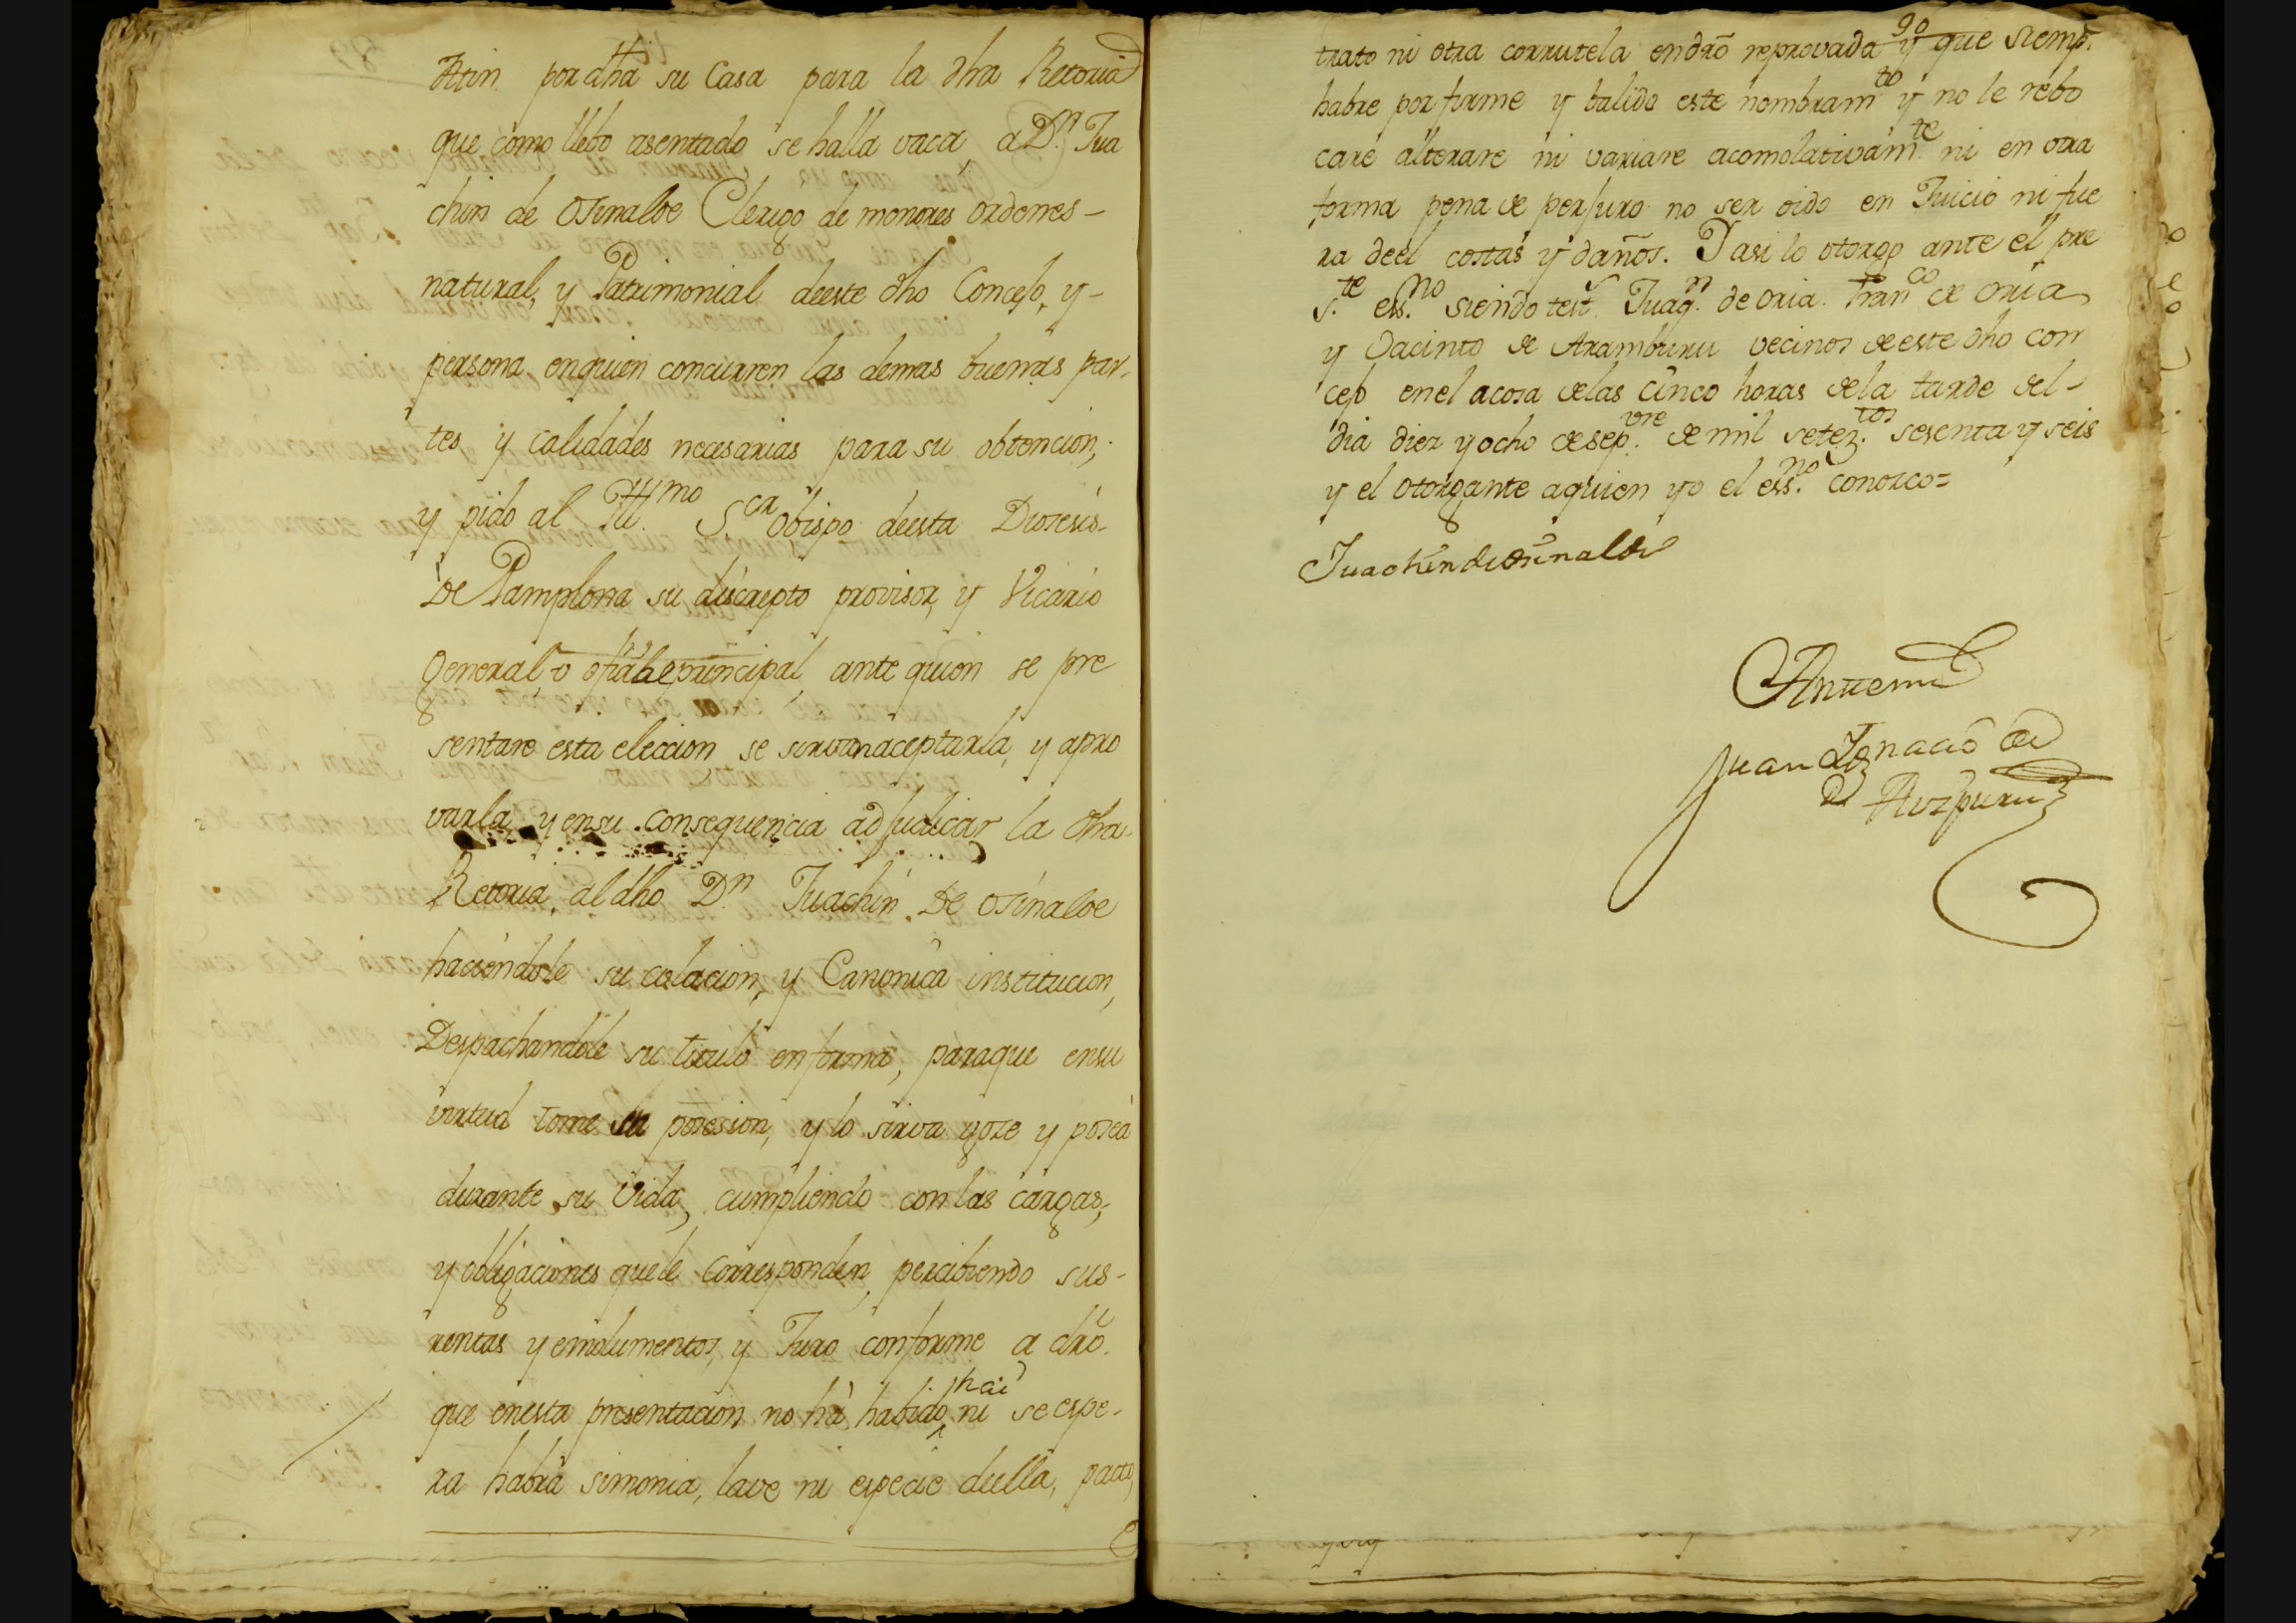 Atin por dha su Casa para la dha Retoria
que como llebo asentado se halla vaca a Dn. Jua
chin de Osinalde Clerigo de monores ordones-
natural, y Patrimonial deeste dho Concejo, y-
persona enquien concurren las demas buenas par-
tes, y calidades necesarias para su obtencion,
y pido al Illmo. Sor Obispo deesta Diosesis-
De Pamplona su discrepto provisor, y Vicario
General, o ofizial principal, ante quien se pre
sentare esta eleccion se sirvan aceptarla, y apro
varla, y ensu consequencia adjudicar la dha-
Retoria al dho Dn. Juachin De Osinalde
haciendole su colacion, y Canonica institucion,
Despachandole su titulo en forma, paraque ensu
virtud tome su posession, y lo sirva goze y posea
durante su Vida, cumpliendo con las cargas,
y obligaciones quele corresponden, percibiendo sus-
rentas y emolumentos, y Juro conforme a dro.
que enesta presentacion no ha habido hai ni se espe-
ra habra simonia, lave ni especie della, pacto,
trato ni otra corrutela endro reprovada y que siemp.
habre por firme y balido este nombramto y no le rebo
care alterare ni variare acomolativamte. ni en otra
forma pena de perjuro no ser oido en Juicio ni fue
ra deel costas y daños. Y asi lo otorgo ante el pre
s.te ess.no siendo test. Juaqn. de Oria. Franco de Oria
y Jacinto de Aramburu vecinos deeste dho con
cejo enel acosa delas cinco horas dela tarde del-
dia diez y ocho de sep.vre de mil setez.tos sesenta y seis
y el otorgante aquien yo el ess.no conosco=
Juachin de Osinalde
Antemi
Juan Ignacio de
Aozpuru